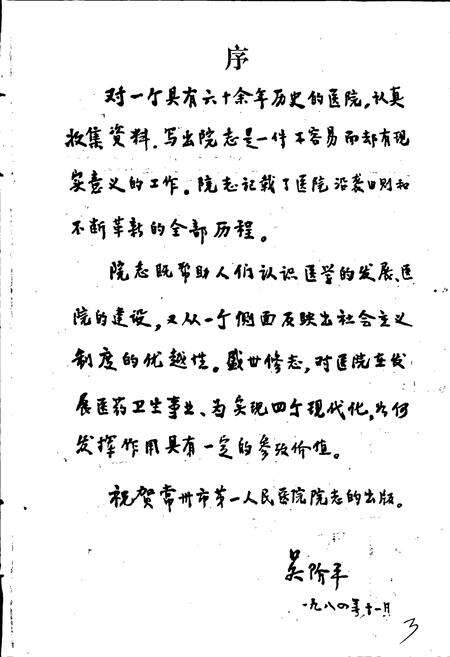 序
对一个具有六十余年历史的医院,认真
收集资料.写出院志是一件不容易而却有现
实意义的工作。院志记载了医院沿袭旧则和
不断革新的全部历程。
院志既帮助人们认识医学的发展、医
院的建设,又从一个侧面反映出社会主义
制度的优越性。盛世修志,对医院在发
展医药卫生事业、为实现四个现代化,如何
发挥作用具有一定的参考价值。
祝贺常州市第一人民医院院志的出版。
吴阶平
一九八四年十一月
3